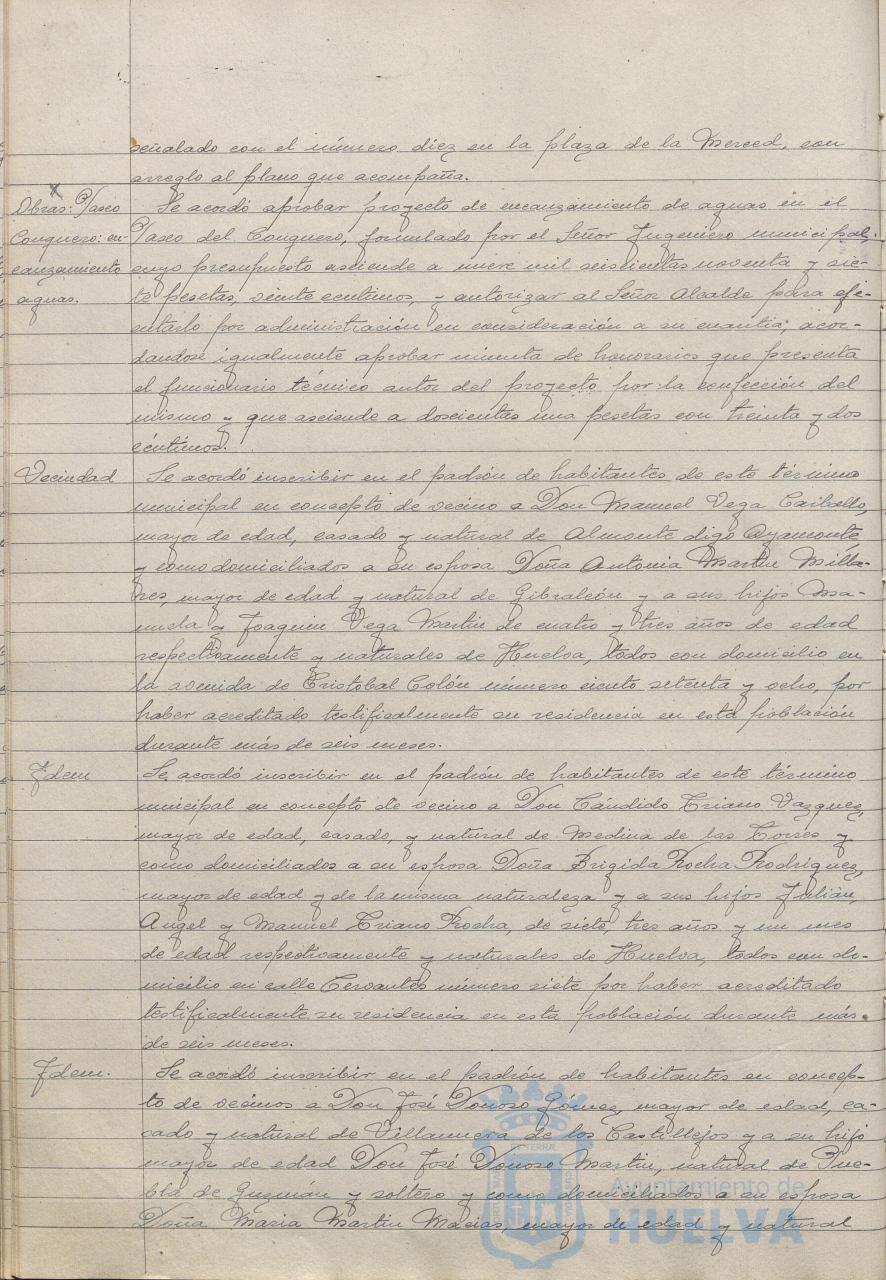 señalado con el número diez en la plaza de la Merced, con
arreglo al plano que acompaña.
Obras: Paseo
Conquero: en-
cauzamiento
aguas.
Se acordó aprobar proyecto de encauzamiento de aguas en el
Paseo del Conquero, formulado por el Señor Ingeniero municipal,
cuyo presupuesto asciende a nueve mil seiscientas noventa y sie-
te pesetas, veinte centimos, y autorizar al Señor Alcalde para eje-
cutarlo por administración en consideración a su cuantia; acor-
dandose igualmente aprobar minuta de honorarios que presenta
el funcionario técnico autor del proyecto por la confección del
mismo y que asciende a doscientas una pesetas con treinta y dos
céntimos.
Vecindad
Se acordó inscribir en el padrón de habitantes de este término
municipal en concepto de vecino a Don Manuel Vega Carballo,
mayor de edad, casado y natural de Almonte digo Ayamonte,
y como domiciliados a su esposa Doña Antonia Martin Milla-
res, mayor de edad y natural de Gibraleón y a sus hijos Ma-
nuela y Joaquin Vega Martin de cuatro y tres años de edad
respectivamente y naturales de Huelva, todos con domicilio en
la avenida de Cristobal Colón número ciento setenta y ocho, por
haber acreditado testificalmente su residencia en esta población
durante más de seis meses.
Idem
Se acordó inscribir en el padrón de habitantes de este término
municipal en concepto de vecino a Don Cándido Triano Vazquez,
mayor de edad, casado, y natural de Medina de las Torres y
como domiciliados a su esposa Doña Brigida Rocha Rodriguez,
mayor de edad y de la misma naturaleza y a sus hijos Julián,
Angel y Manuel Triano Rocha, de siete, tres años y un mes
de edad respectivamente y naturales de Huelva, todos con do-
micilio en calle Cervantes número siete por haber acreditado
testificalmente su residencia en esta población durante más
de seis meses.
Idem.
Se acordó inscribir en el padrón de habitantes en concep-
to de vecinos a Don José Donoso Gómez, mayor de edad, ca-
sado y natural de Villanueva de los Castillejos y a su hijo
mayor de edad Don José Donoso Martin, natural de Pue-
bla de Guzmán y soltero y como domiciliados a su esposa
Doña Maria Martin Macias, mayor de edad y natural
Ayuntamiento de
HUELVA